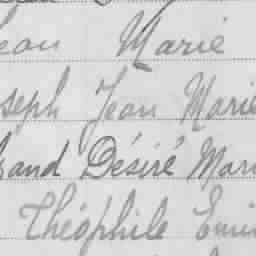 ean Marie
seph Jean Marie
and Désiré Mari
Théophile Emi